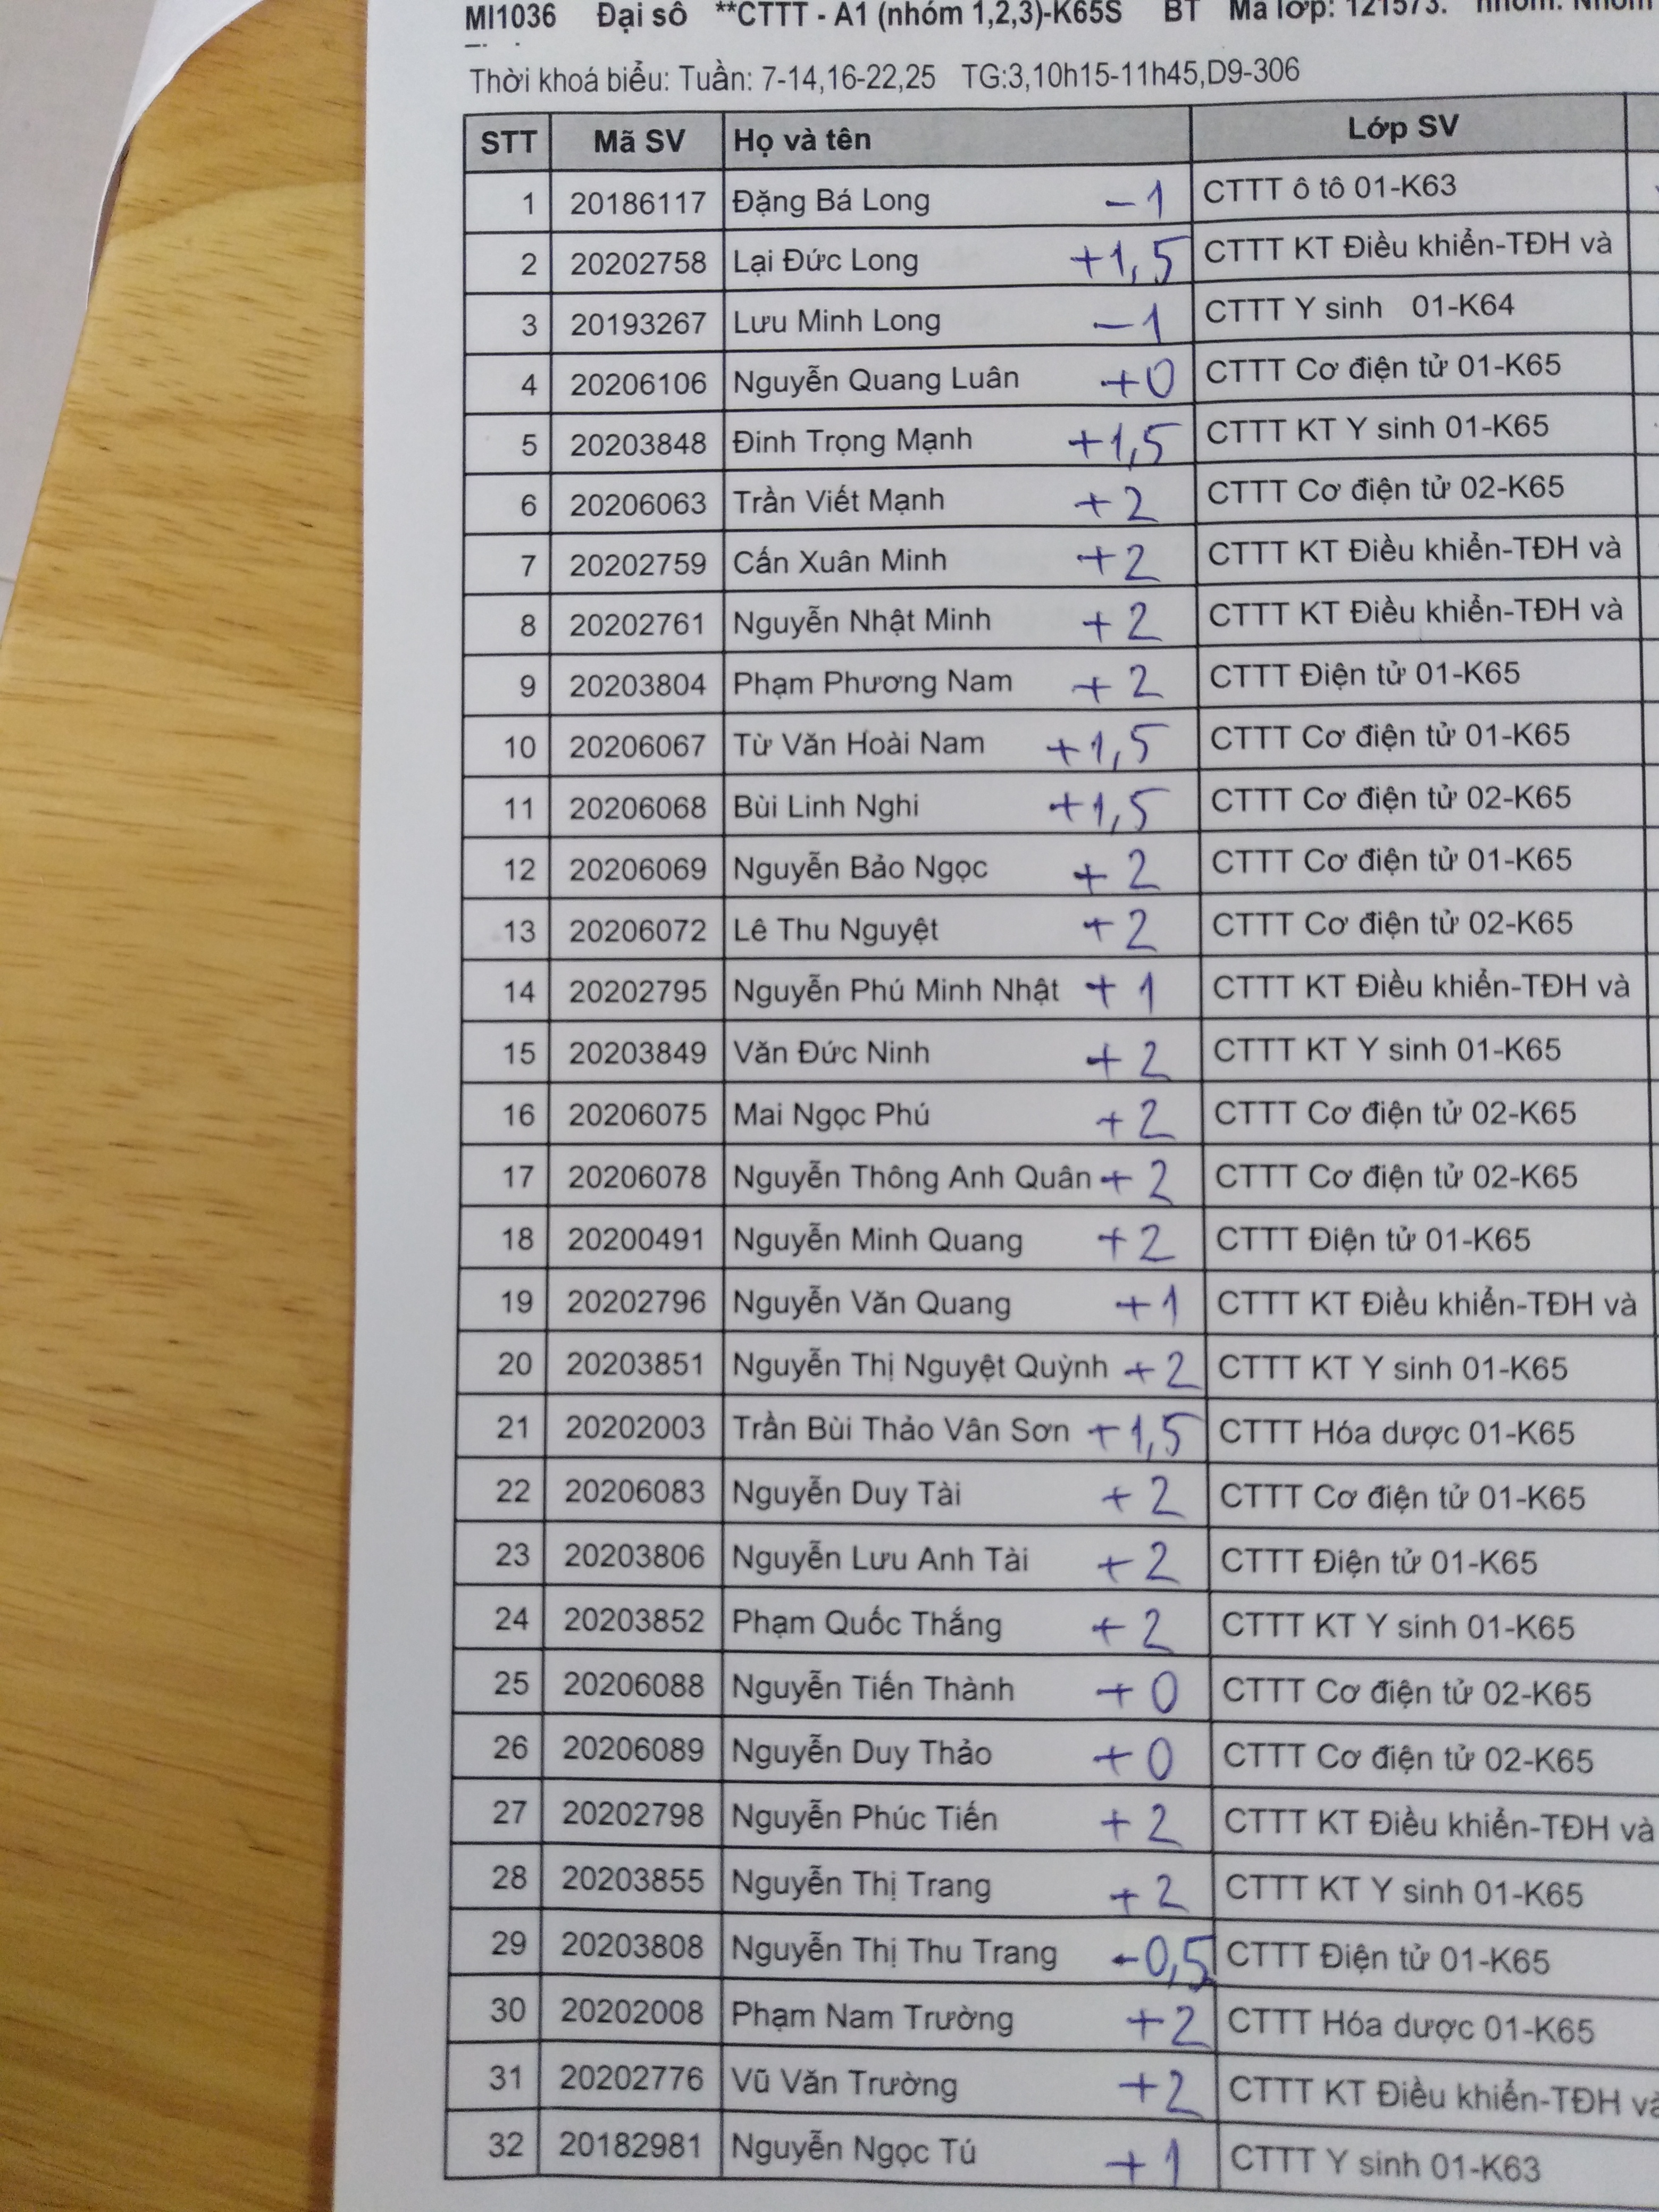 MI1036 Đại số **CTTT - A1 (nhóm 1,2,3)-K65S BT Mã lớp: 121573. nhóm: Nhóm
Thời khoá biểu: Tuần: 7-14,16-22,25 TG:3,10h15-11h45,D9-306
STT Mã SV Họ và tên Lớp SV
1 20186117 Đặng Bá Long -1 CTTT ô tô 01-K63
2 20202758 Lại Đức Long +1,5 CTTT KT Điều khiển-TĐH và
3 20193267 Lưu Minh Long -1 CTTT Y sinh 01-K64
4 20206106 Nguyễn Quang Luân +0 CTTT Cơ điện tử 01-K65
5 20203848 Đinh Trọng Mạnh +1,5 CTTT KT Y sinh 01-K65
6 20206063 Trần Viết Mạnh +2 CTTT Cơ điện tử 02-K65
7 20202759 Cấn Xuân Minh +2 CTTT KT Điều khiển-TĐH và
8 20202761 Nguyễn Nhật Minh +2 CTTT KT Điều khiển-TĐH và
9 20203804 Phạm Phương Nam +2 CTTT Điện tử 01-K65
10 20206067 Từ Văn Hoài Nam +1,5 CTTT Cơ điện tử 01-K65
11 20206068 Bùi Linh Nghi +1,5 CTTT Cơ điện tử 02-K65
12 20206069 Nguyễn Bảo Ngọc +2 CTTT Cơ điện tử 01-K65
13 20206072 Lê Thu Nguyệt +2 CTTT Cơ điện tử 02-K65
14 20202795 Nguyễn Phú Minh Nhật +1 CTTT KT Điều khiển-TĐH và
15 20203849 Văn Đức Ninh +2 CTTT KT Y sinh 01-K65
16 20206075 Mai Ngọc Phú +2 CTTT Cơ điện tử 02-K65
17 20206078 Nguyễn Thông Anh Quân +2 CTTT Cơ điện tử 02-K65
18 20200491 Nguyễn Minh Quang +2 CTTT Điện tử 01-K65
19 20202796 Nguyễn Văn Quang +1 CTTT KT Điều khiển-TĐH và
20 20203851 Nguyễn Thị Nguyệt Quỳnh +2 CTTT KT Y sinh 01-K65
21 20202003 Trần Bùi Thảo Vân Sơn +1,5 CTTT Hóa dược 01-K65
22 20206083 Nguyễn Duy Tài +2 CTTT Cơ điện tử 01-K65
23 20203806 Nguyễn Lưu Anh Tài +2 CTTT Điện tử 01-K65
24 20203852 Phạm Quốc Thắng +2 CTTT KT Y sinh 01-K65
25 20206088 Nguyễn Tiến Thành +0 CTTT Cơ điện tử 02-K65
26 20206089 Nguyễn Duy Thảo +0 CTTT Cơ điện tử 02-K65
27 20202798 Nguyễn Phúc Tiến +2 CTTT KT Điều khiển-TĐH và
28 20203855 Nguyễn Thị Trang +2 CTTT KT Y sinh 01-K65
29 20203808 Nguyễn Thị Thu Trang -0,5 CTTT Điện tử 01-K65
30 20202008 Phạm Nam Trường +2 CTTT Hóa dược 01-K65
31 20202776 Vũ Văn Trường +2 CTTT KT Điều khiển-TĐH và
32 20182981 Nguyễn Ngọc Tú +1 CTTT Y sinh 01-K63